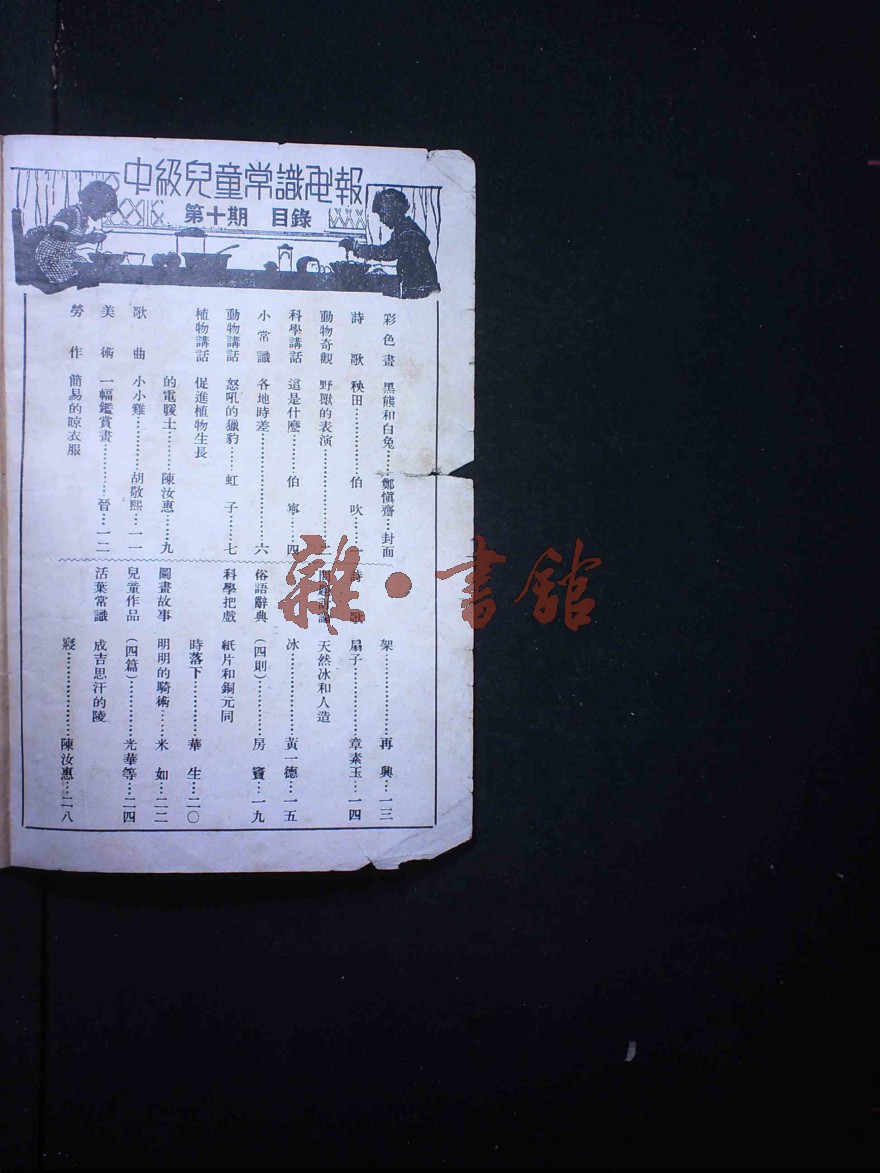 中級兒童常識画報
第十期　目錄
彩色畫　黑熊和白兔……鄭愼齋…封面
詩　歌　秧田……………伯　吹……一
動物奇觀　野獸的表演………………二
科學講話　這是什麽………伯　寧…四
小常識　各地時差……………………六
動物講話　怒吼的獵豹……虹　子……七
植物講話　促進植物生長
的電暖土……陳汝惠…九
歌　曲　小小雞………胡敬熙…一一
美　術　一幅鑑賞畫………晉…一二
勞　作　簡易的晾衣服
架………………再　興…一三
詩　歌　扇子……………章素玉…一四
天然冰和人造
冰………………黃一德…一五
俗語辭典　(四則)…………房　竇…一九
科學把戲　紙片和銅元同
時落下…………華　生…二〇
圖畫故事　明明的騎術……米　如…二二
兒童作品　(四篇)…………光華等…二四
活葉常識　成吉思汗的陵
寢………………陳汝惠…二八
雜·書館